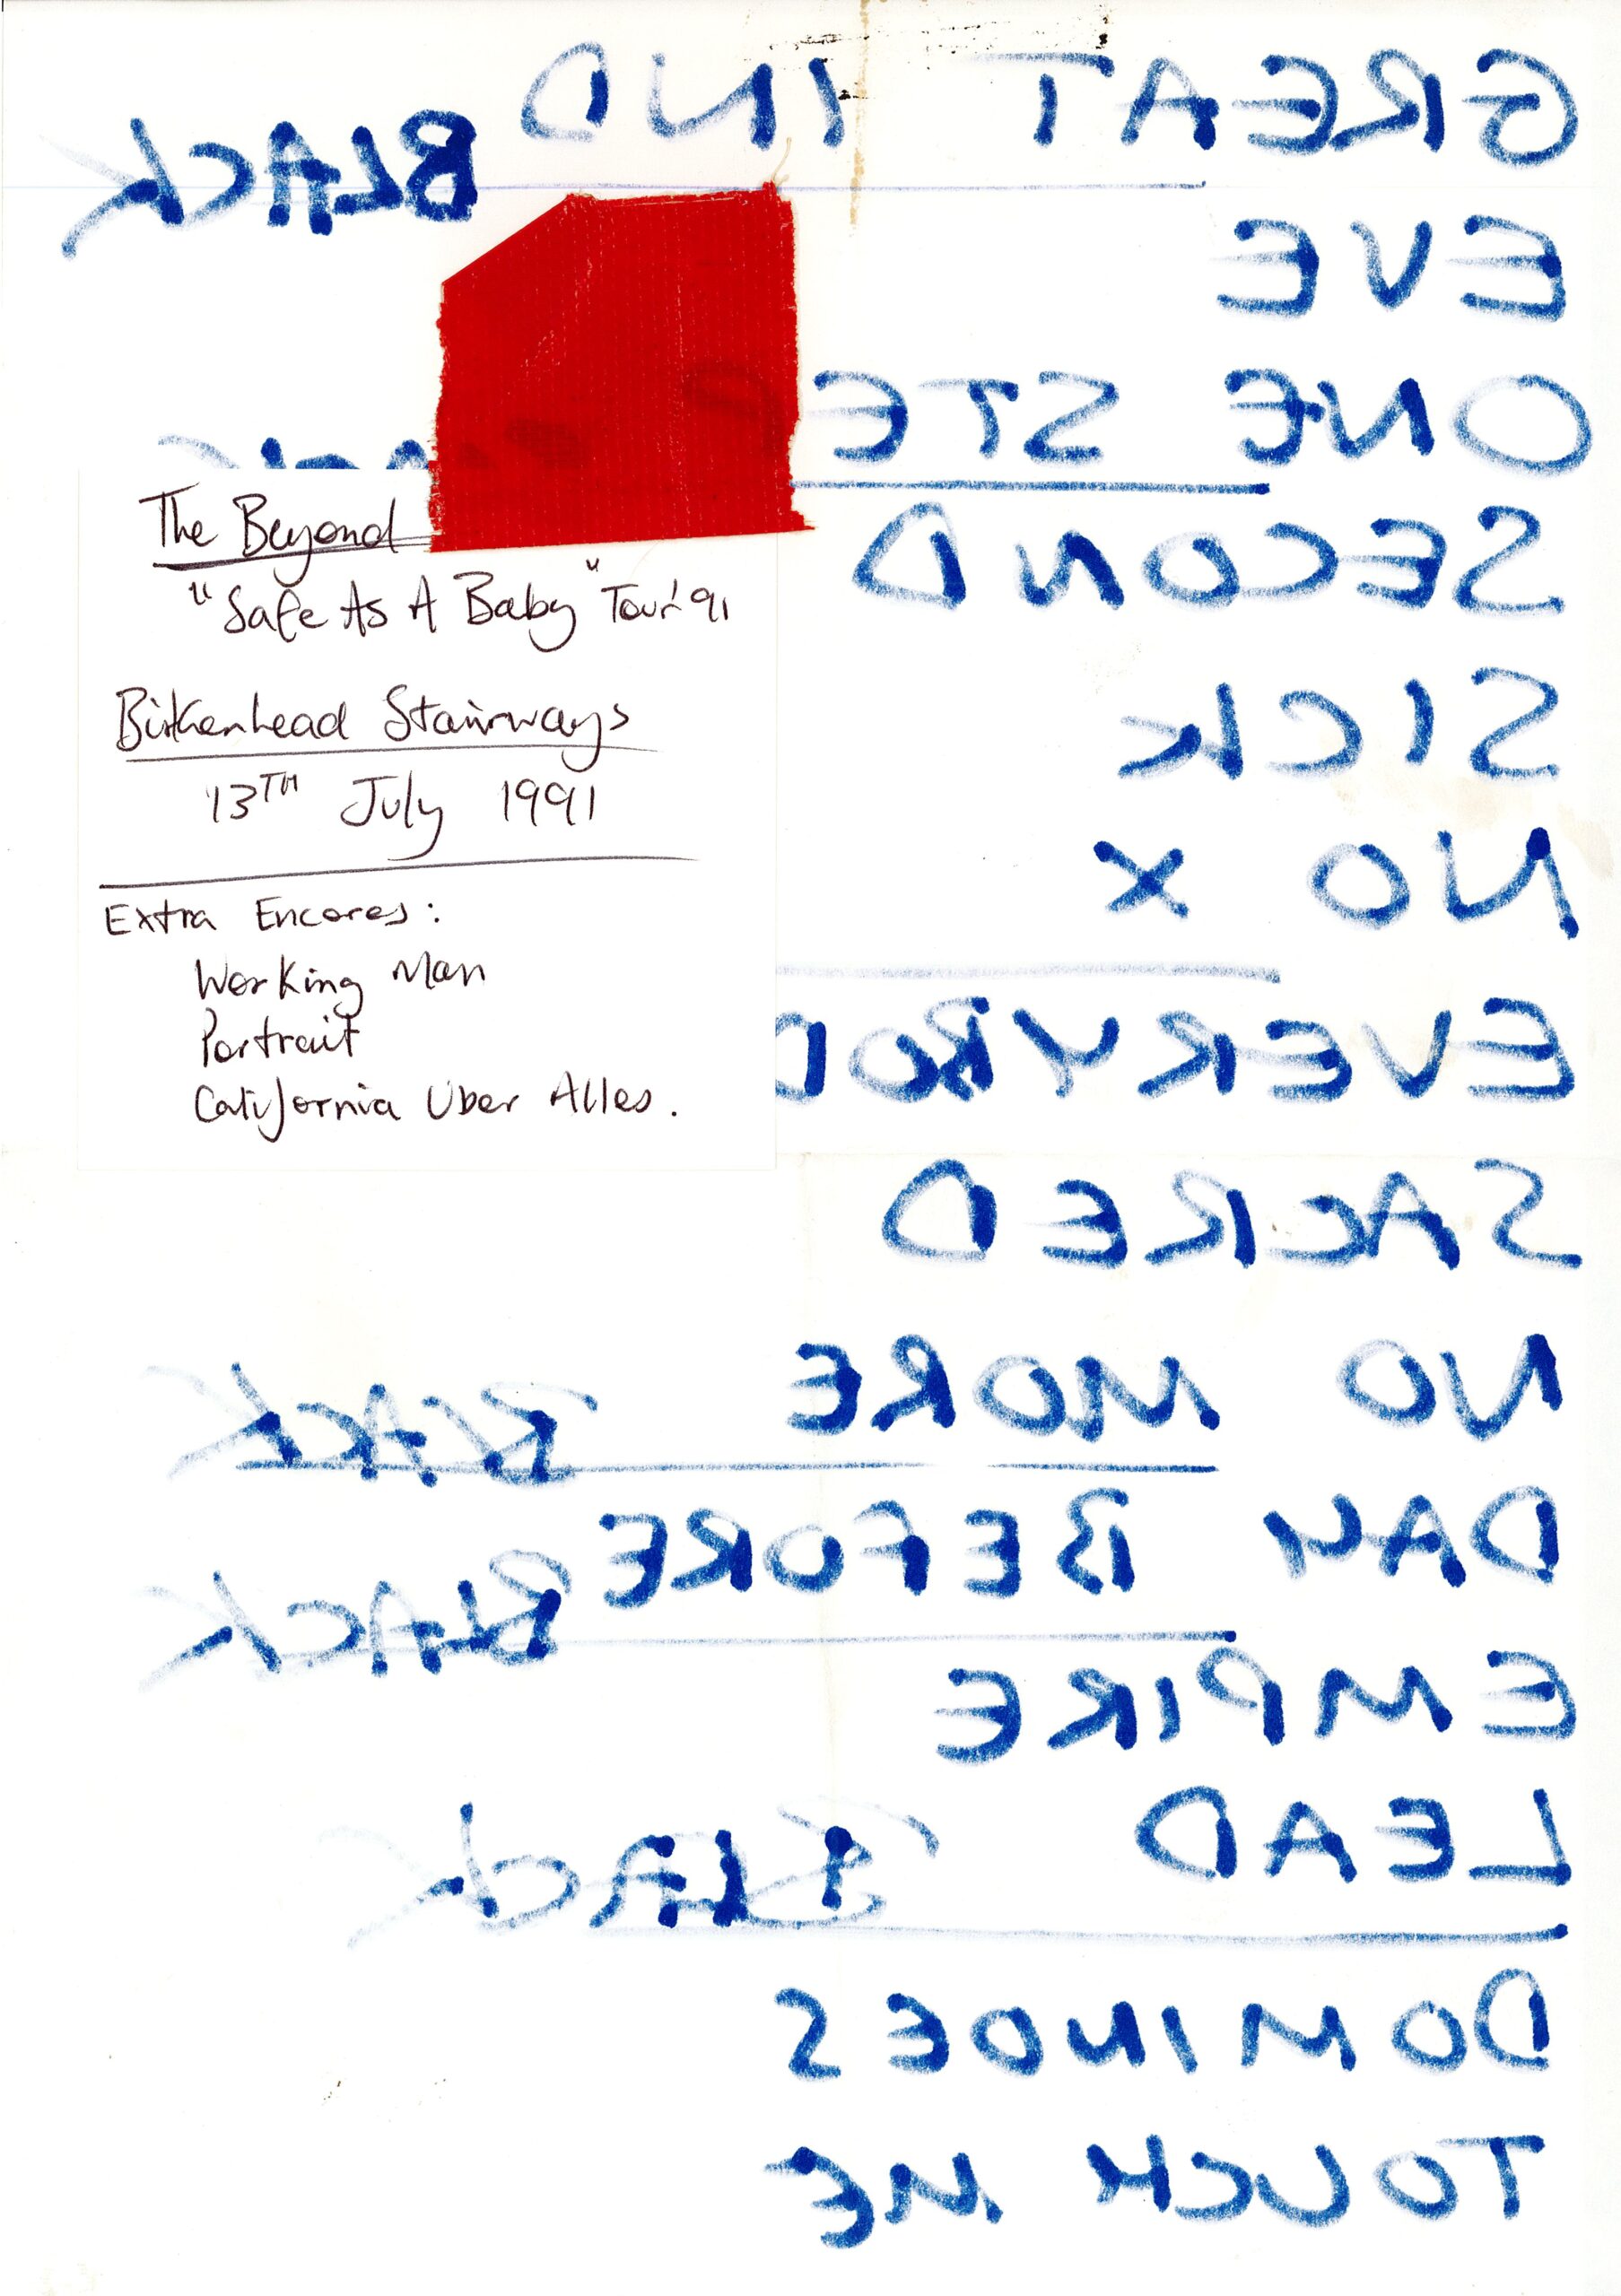 GREAT IND BLACK
EVE
ONE STEP
SECOND
SICK
NO X
EVERYBOD
SACRED
NO MORE BLACK
DAY BEFORE BLACK
EMPIRE
LEAD BLACK
DOMINOES
TOUCH ME
The Beyond
"Safe As A Baby" Tour '91
Birkenhead Stairways
13TH July 1991
Extra Encores:
Working Man
Portrait
California Uber Alles.